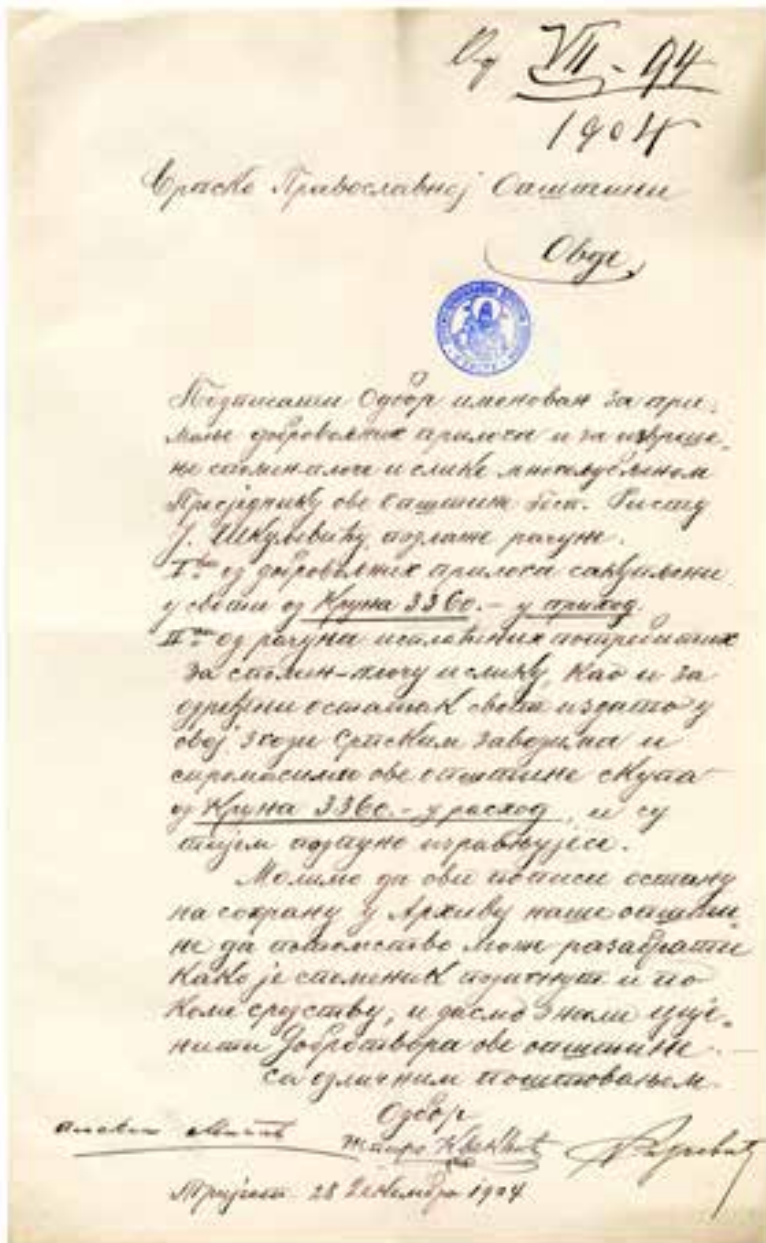 VII - 94
1904
Српско Православној Општини
Овде
Подписати Одбор именован за при-
мање добровољних прилога и за извршe-
не спомен плоче и слике многољубљеном
Предједнику ове Општине Госп. Ристу
J. Шкуљевићу, подлаже рачуне.
I.º од добровољних прилога сакупљени
у своти од Круна 3360.- у приход.
II.º од рачуна исплаћених потребитих
за спомен-плочу и слику, Као и за
одређени остатак своте издато у
овој згоди Српским Заводима и
сиромасима ове општине скупа
од Круна 3360.- у расход, и су
тијем подпуно изравњујесе.
Молимо да ови пописи остану
на сохрану у Архиву наше општи-
не да потомство може разабрати
Како је споменик подигнут и по
Коме средству, и дасмо знали цује-
нити Добротвора ове општине.
са одличним поштовањем.
Одбор
Тријест 28 Декембра 1904